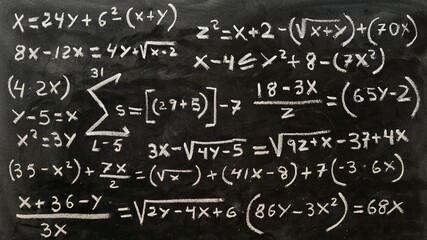 x = 24y + 6² - (x+y)
z² = x + 2 - (√x+y) + (70x)
8x - 12x = 4y + √x-2
x - 4 ≤ y² + 8 - (7x²)
(4·2x)
31
Σ s = [(29+5)] - 7
L - 5
18 - 3x / z = (65y - 2)
y - 5 = x
x² = 3y
3x - √4y-5 = √92+x - 37 + 4x
(35 - x²) + 7x / 2 = (√x) + (41x - 8) + 7(-3·6x)
x + 36 - y / 3x = √2y-4x+6 · (86y - 3x²) = 68x